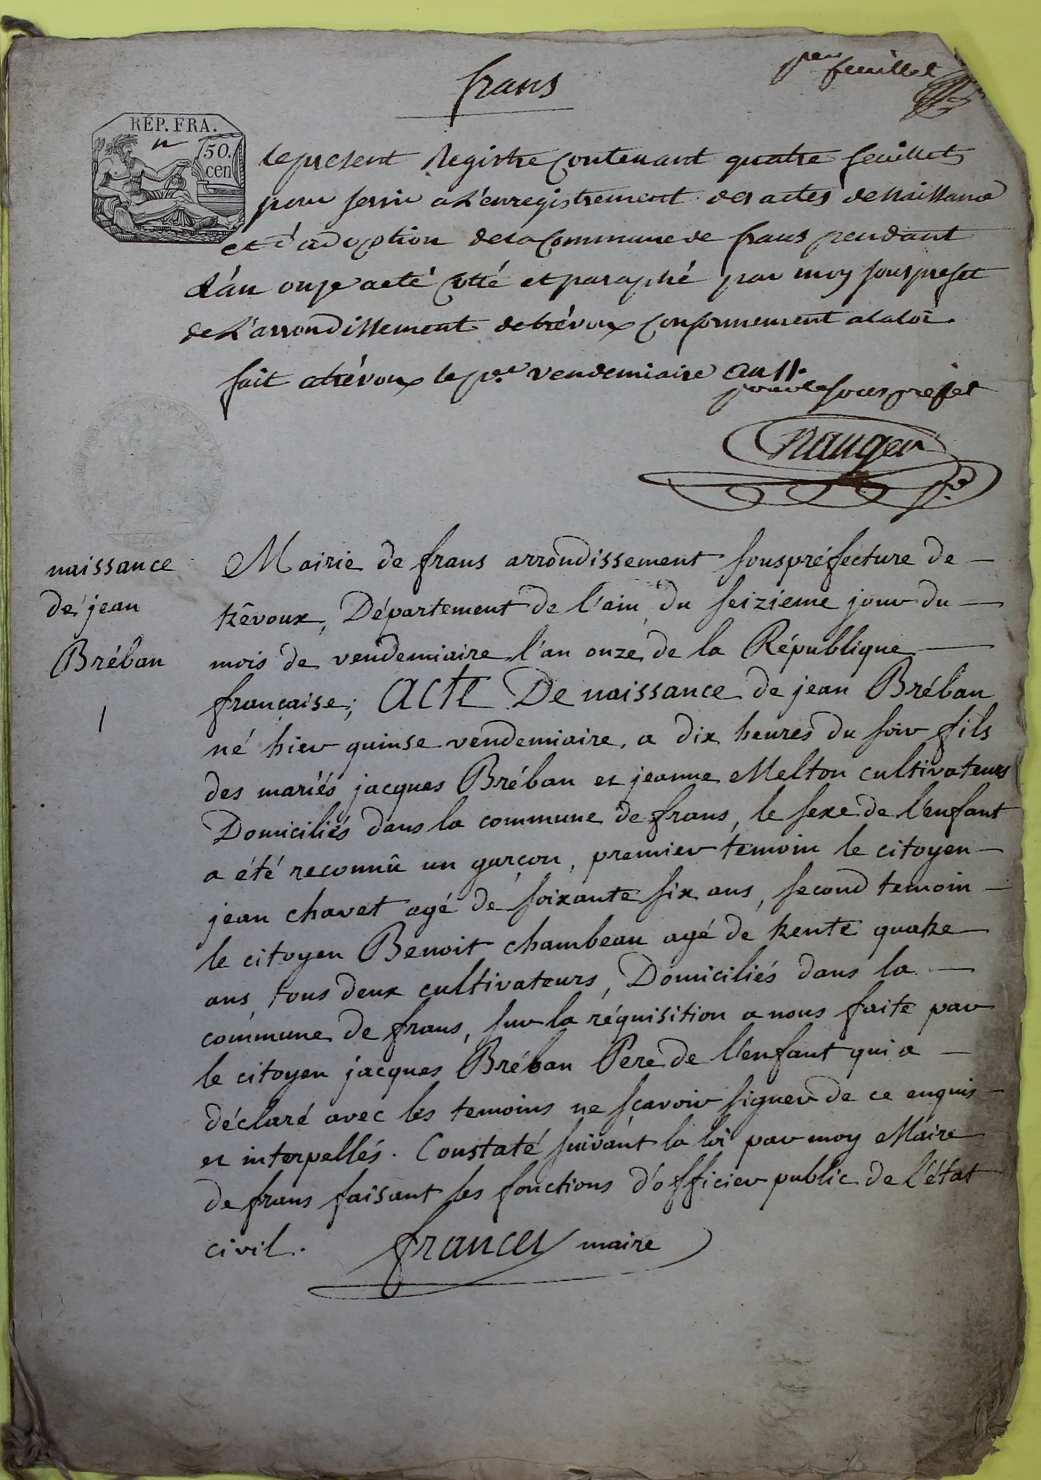 frans
per feuillet
RÉP. FRA.
50.
cen
le present Registre Contenant quatre feuillets
pour servir a L'enregistrement des actes de Naissance
et d'adoption de la Commune de frans pendant
L'an onze acté Cotté et paraphé par moy souspreset
de L'arrondissement de trévoux Conformement a la loi.
fait a trévoux le pr. vendemiaire an 11.
pour le souspreset
naissance
de jean
Bréban
1
Mairie de frans arrondissement souspréfecture de
trévoux, Département de l'ain, du seizieme jour du
mois de vendemiaire l'an onze de la République
française; ACTE De naissance de jean Bréban
né hier quinse vendemiaire, a dix heures du soir fils
des mariés jacques Bréban et jeanne Melton cultivateurs
Domiciliés dans la commune de frans, le sexe de l'enfant
a été reconnû un garçon, premier temoin le citoyen
jean chavet agé de soixante six ans, second temoin
le citoyen Benoit chambeau agé de trente quatre
ans, tous deux cultivateurs, Domiciliés dans la
commune de frans, sur la réquisition a nous faite par
le citoyen jacques Bréban Pere de l'enfant qui a
déclaré avec les temoins ne sçavoir signer de ce enquis
et interpellés. Constaté suivant la loi par moy Maire
de frans faisant les fonctions d'officier public de l'état
civil. frances maire